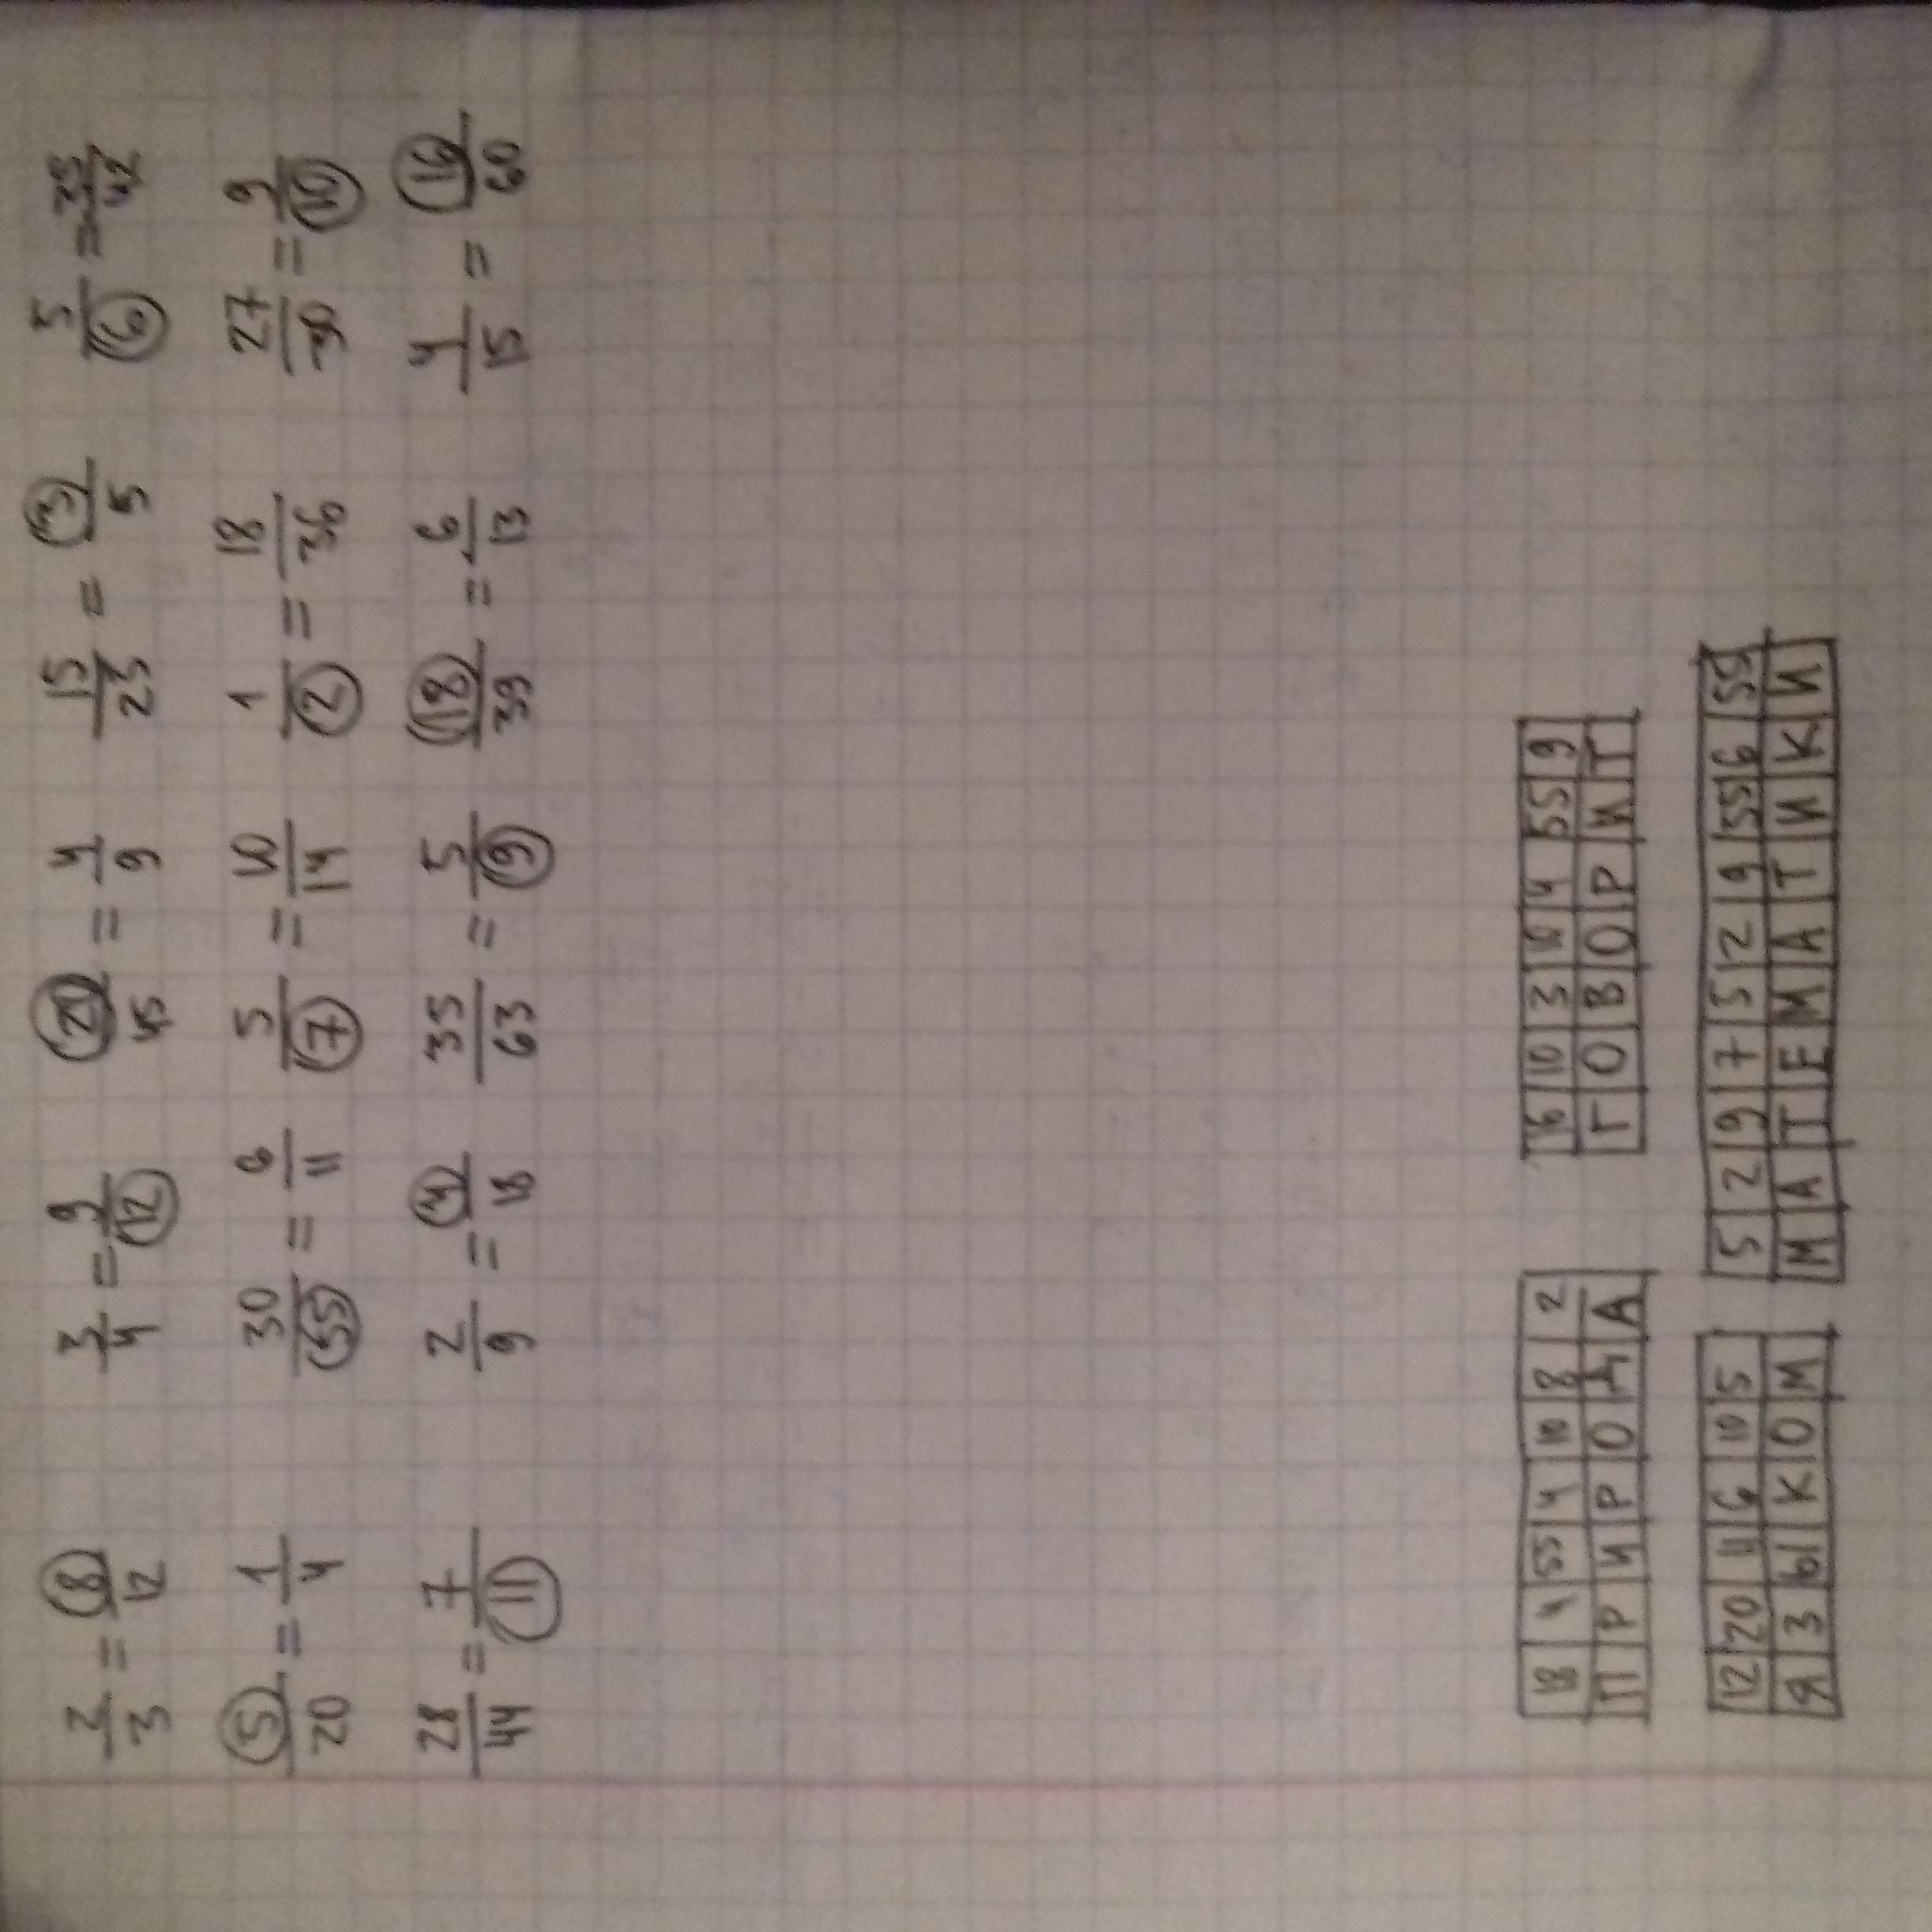 2/3 = 8/12 3/4 = 9/12 20/45 = 4/9 15/25 = 3/5 5/6 = 35/42
5/20 = 1/4 30/55 = 6/11 5/7 = 10/14 1/2 = 18/36 27/30 = 9/10
28/44 = 7/11 2/9 = 4/18 35/63 = 5/9 18/39 = 6/13 4/15 = 16/60
18 4 55 4 10 8 2 16 10 3 10 4 55 9
П Р И Р О Д А Г О В О Р И Т
12 20 11 6 10 5 5 2 9 7 5 2 9 55 6 55
Я З Ы К О М М А Т Е М А Т И К И